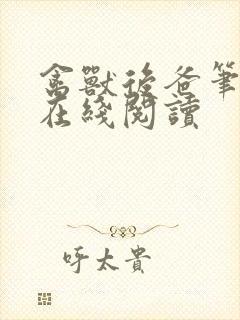 禽獸後爸筆
在綫閱讀
呼太貴